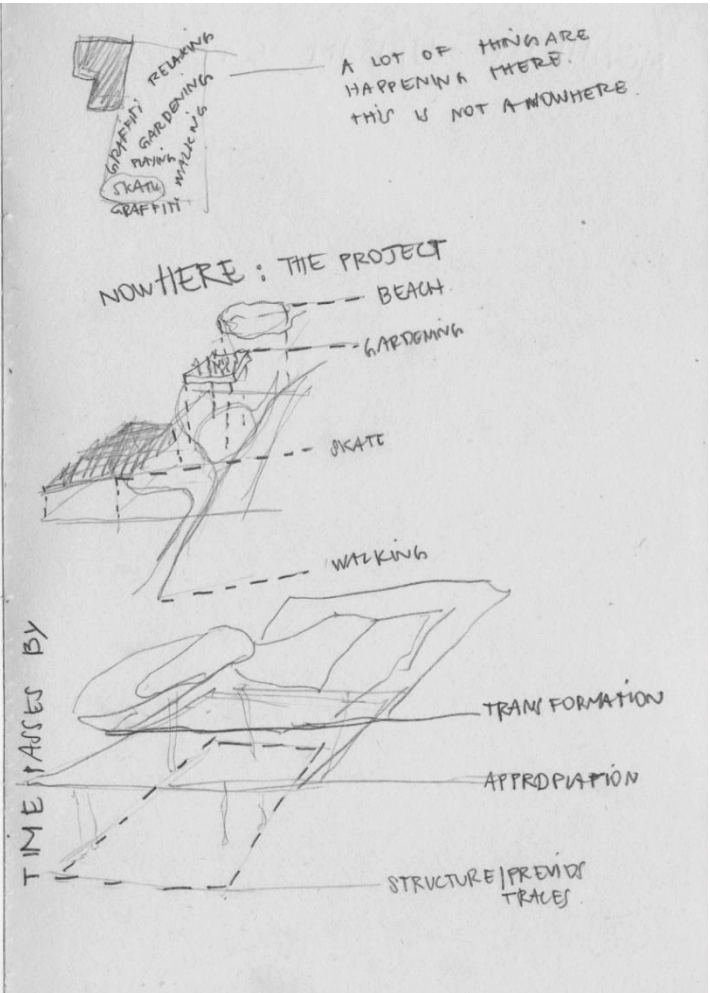 RELAXING
GRAFFITI
GARDENING
PLAYING
WALKING
SKATE
GRAFFITI
A LOT OF THING ARE
HAPPENING THERE.
THIS IS NOT A NOWHERE.
NOWHERE : THE PROJECT
BEACH
GARDENING
SKATE
WALKING
TIME PASSES BY
TRANSFORMATION
APPROPIATION
STRUCTURE/PREVIOS
TRACES